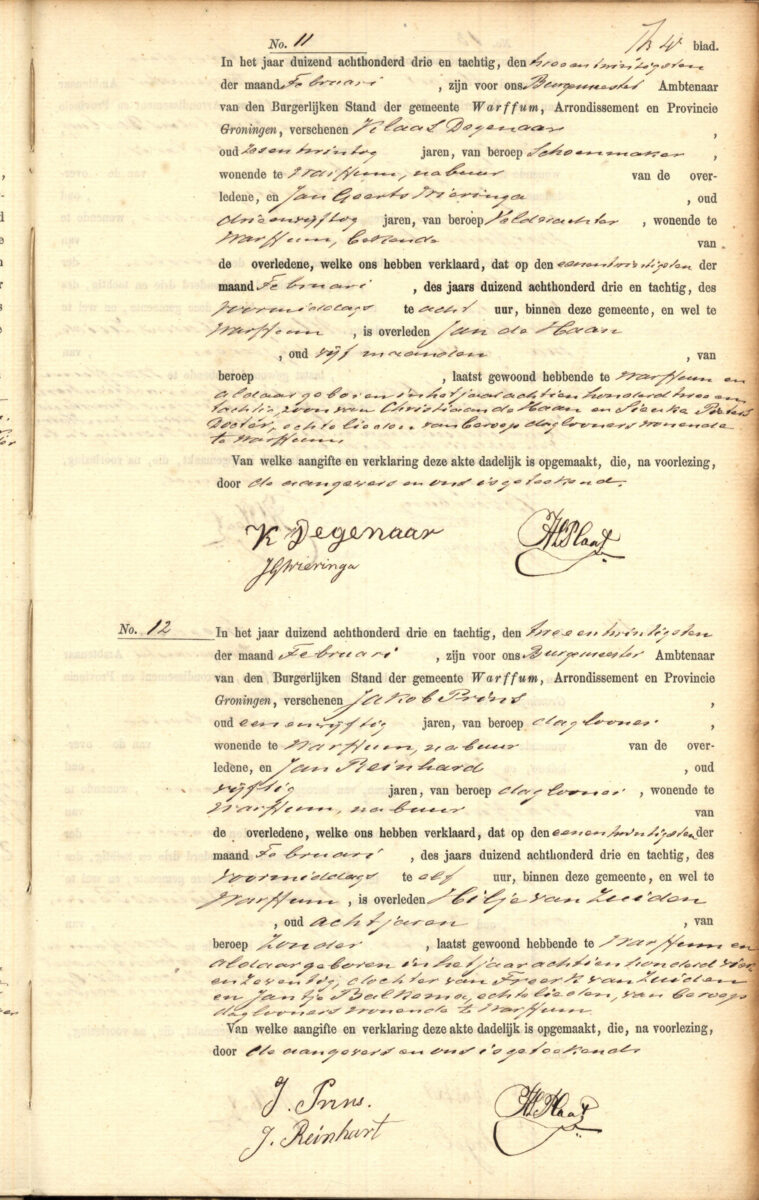 No. 11 blad.
In het jaar duizend achthonderd drie en tachtig, den tweeentwintigsten
der maand Februari , zijn voor ons Burgemeester Ambtenaar
van den Burgerlijken Stand der gemeente Warffum, Arrondissement en Provincie
Groningen, verschenen Klaas Degenaar ,
oud zesentwintig jaren, van beroep Schoenmaker ,
wonende te Warffum, nabuur van de over-
ledene, en Jan Geerts Wieringa , oud
drieenvijftig jaren, van beroep Veldwachter , wonende te
Warffum, bekende van
de overledene, welke ons hebben verklaard, dat op den eenentwintigsten der
maand Februari , des jaars duizend achthonderd drie en tachtig, des
voormiddags te acht uur, binnen deze gemeente, en wel te
Warffum , is overleden Jan de Haan
, oud vijf maanden , van
beroep , laatst gewoond hebbende te Warffum en
aldaar geboren in het jaar achtienhonderd twee en
tachtig, zoon van Christiaan de Haan en Sieuke Pieters
Doctér, echtelieden van beroep daglooners wonende
te Warffum
Van welke aangifte en verklaring deze akte dadelijk is opgemaakt, die, na voorlezing,
door de aangevers en ons is geteekend.
K Degenaar HPlaat
JGWieringa
No. 12 In het jaar duizend achthonderd drie en tachtig, den tweeentwintigsten
der maand Februari , zijn voor ons Burgemeester Ambtenaar
van den Burgerlijken Stand der gemeente Warffum, Arrondissement en Provincie
Groningen, verschenen Jakob Prins ,
oud eenenvijftig jaren, van beroep daglooner ,
wonende te Warffum, nabuur van de over-
ledene, en Jan Reinhard , oud
vijftig jaren, van beroep daglooner , wonende te
Warffum, nabuur van
de overledene, welke ons hebben verklaard, dat op den eenentwintigsten der
maand Februari , des jaars duizend achthonderd drie en tachtig, des
voormiddags te elf uur, binnen deze gemeente, en wel te
Warffum , is overleden Hilje van Zuiden
, oud acht jaren , van
beroep zonder , laatst gewoond hebbende te Warffum en
aldaar geboren in het jaar achtienhonderd vier
en zeventig, dochter van Freerk van Zuiden
en Jantje Balkema, echtelieden, van beroep
daglooners wonende te Warffum.
Van welke aangifte en verklaring deze akte dadelijk is opgemaakt, die, na voorlezing,
door de aangevers en ons is geteekend
J. Prins. HPlaat
J. Reinhart